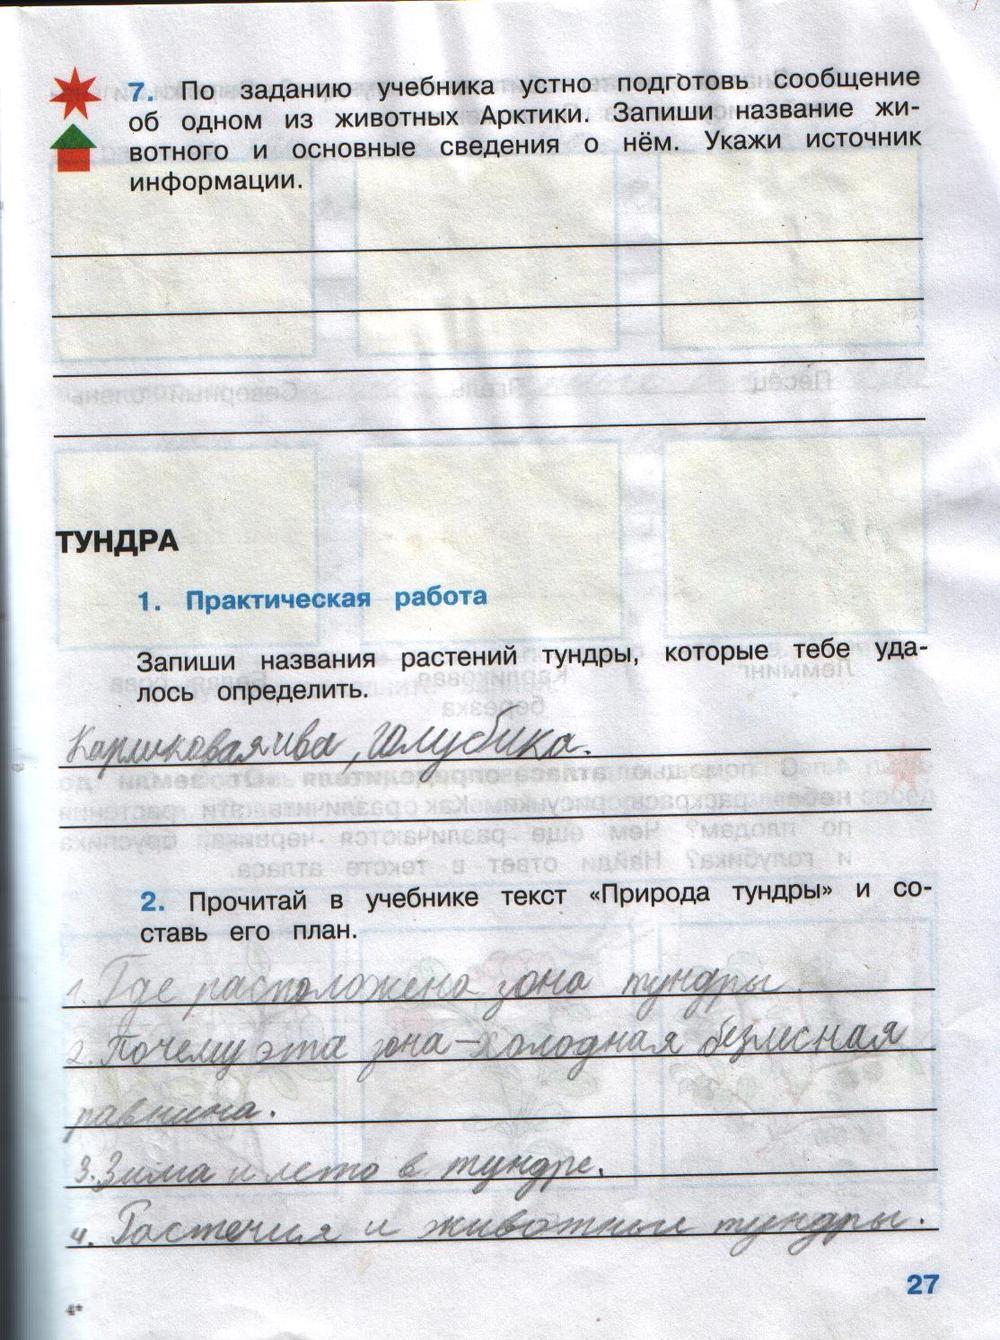 7. По заданию учебника устно подготовь сообщение
об одном из животных Арктики. Запиши название жи-
вотного и основные сведения о нём. Укажи источник
информации.
ТУНДРА
1. Практическая работа
Запиши названия растений тундры, которые тебе уда-
лось определить.
Карликовая ива, голубика.
2. Прочитай в учебнике текст «Природа тундры» и со-
ставь его план.
1. Где расположена зона тундры.
2. Почему эта зона – холодная безлесная
равнина.
3. Зима и лето в тундре.
4. Растения и животные тундры.
27
4*